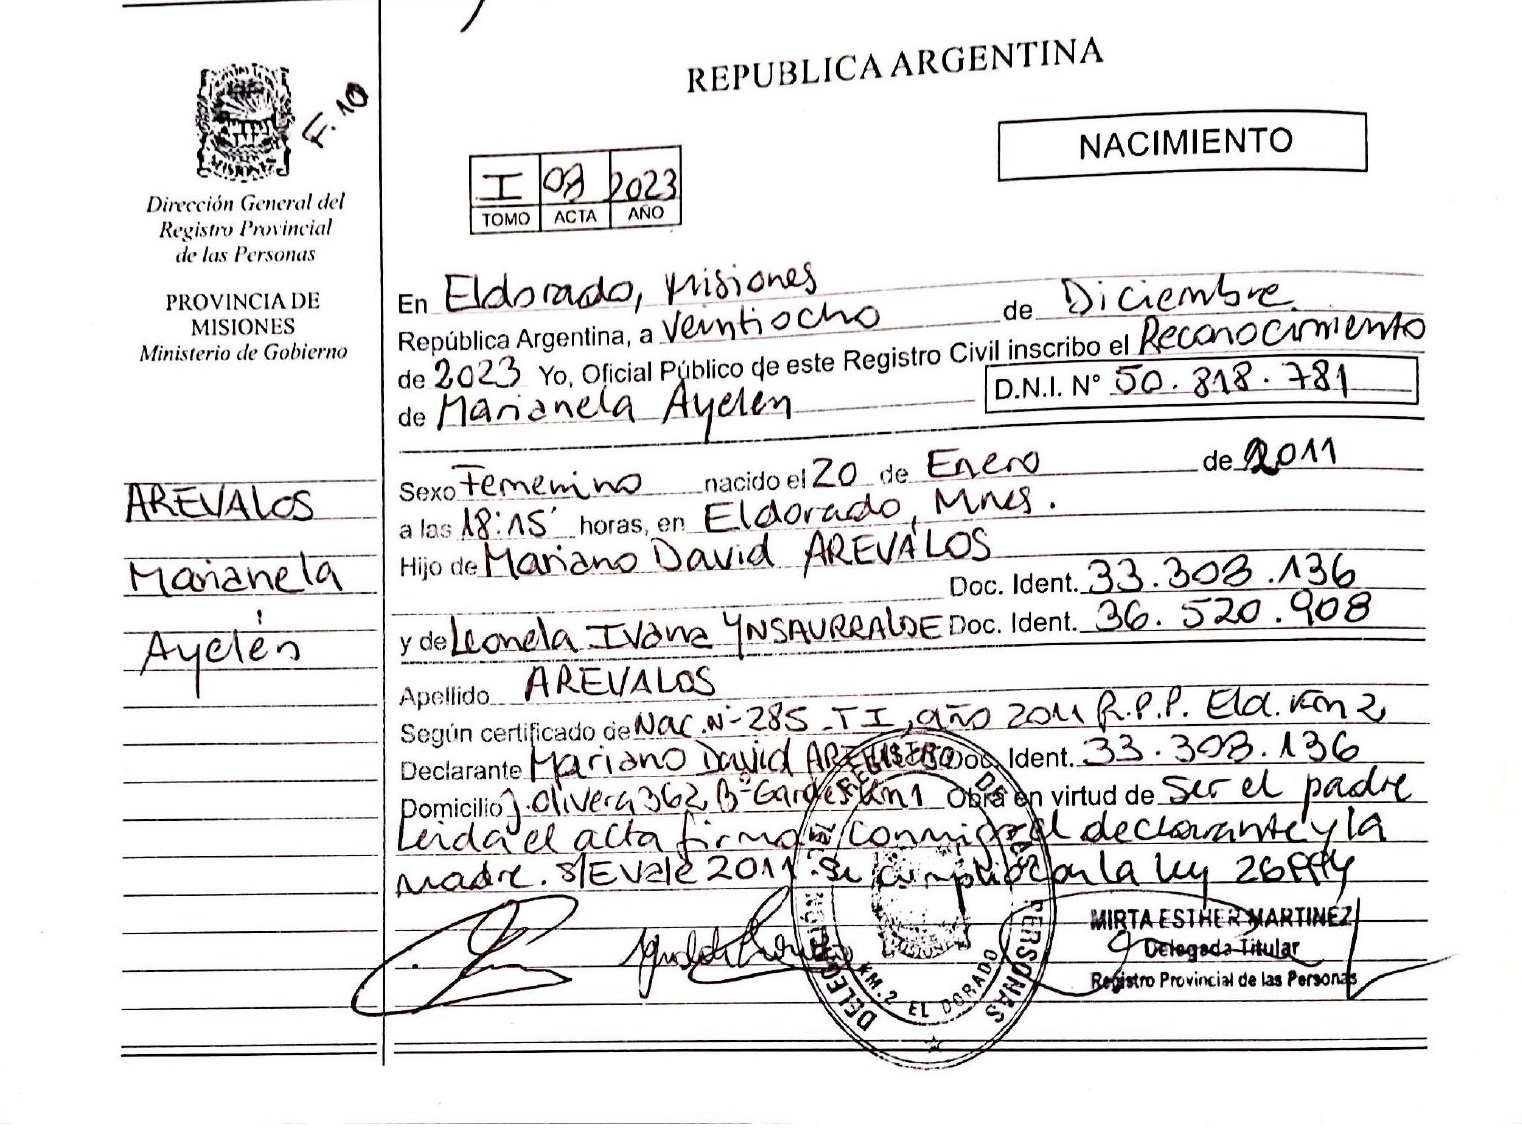 REPUBLICA ARGENTINA
F. 10
NACIMIENTO
I 08 2023
TOMO ACTA AÑO
Dirección General del
Registro Provincial
de las Personas
PROVINCIA DE
MISIONES
Ministerio de Gobierno
AREVALOS
Marianela
Ayelén
En Eldorado, Misiones
República Argentina, a Veintiocho de Diciembre
de 2023 Yo, Oficial Público de este Registro Civil inscribo el Reconocimiento
de Marianela Ayelen D.N.I. N° 50.818.781
Sexo Femenino nacido el 20 de Enero de 2011
a las 18:15' horas, en Eldorado, Mnes.
Hijo de Mariano David AREVALOS
Doc. Ident. 33.308.136
y de Leonela Ivana YNSAURRALDE Doc. Ident. 36.520.908
Apellido AREVALOS
Según certificado de Nac. N° 285 TI, año 2011 R.P.P. Eld. Km 2,
Declarante Mariano David Doc. Ident. 33.308.136
Domicilio J. Olivera 362 B° Km 1 Obra en virtud de Ser el padre
Leida el acta firma conmigo el declarante y la
madre. S/E Vale 2011. Se cumplió con la ley 26994
REGISTRO DE PERSONAS
KM. 2 EL DORADO
MIRTA ESTHER MARTINEZ
Delegada Titular
Registro Provincial de las Personas